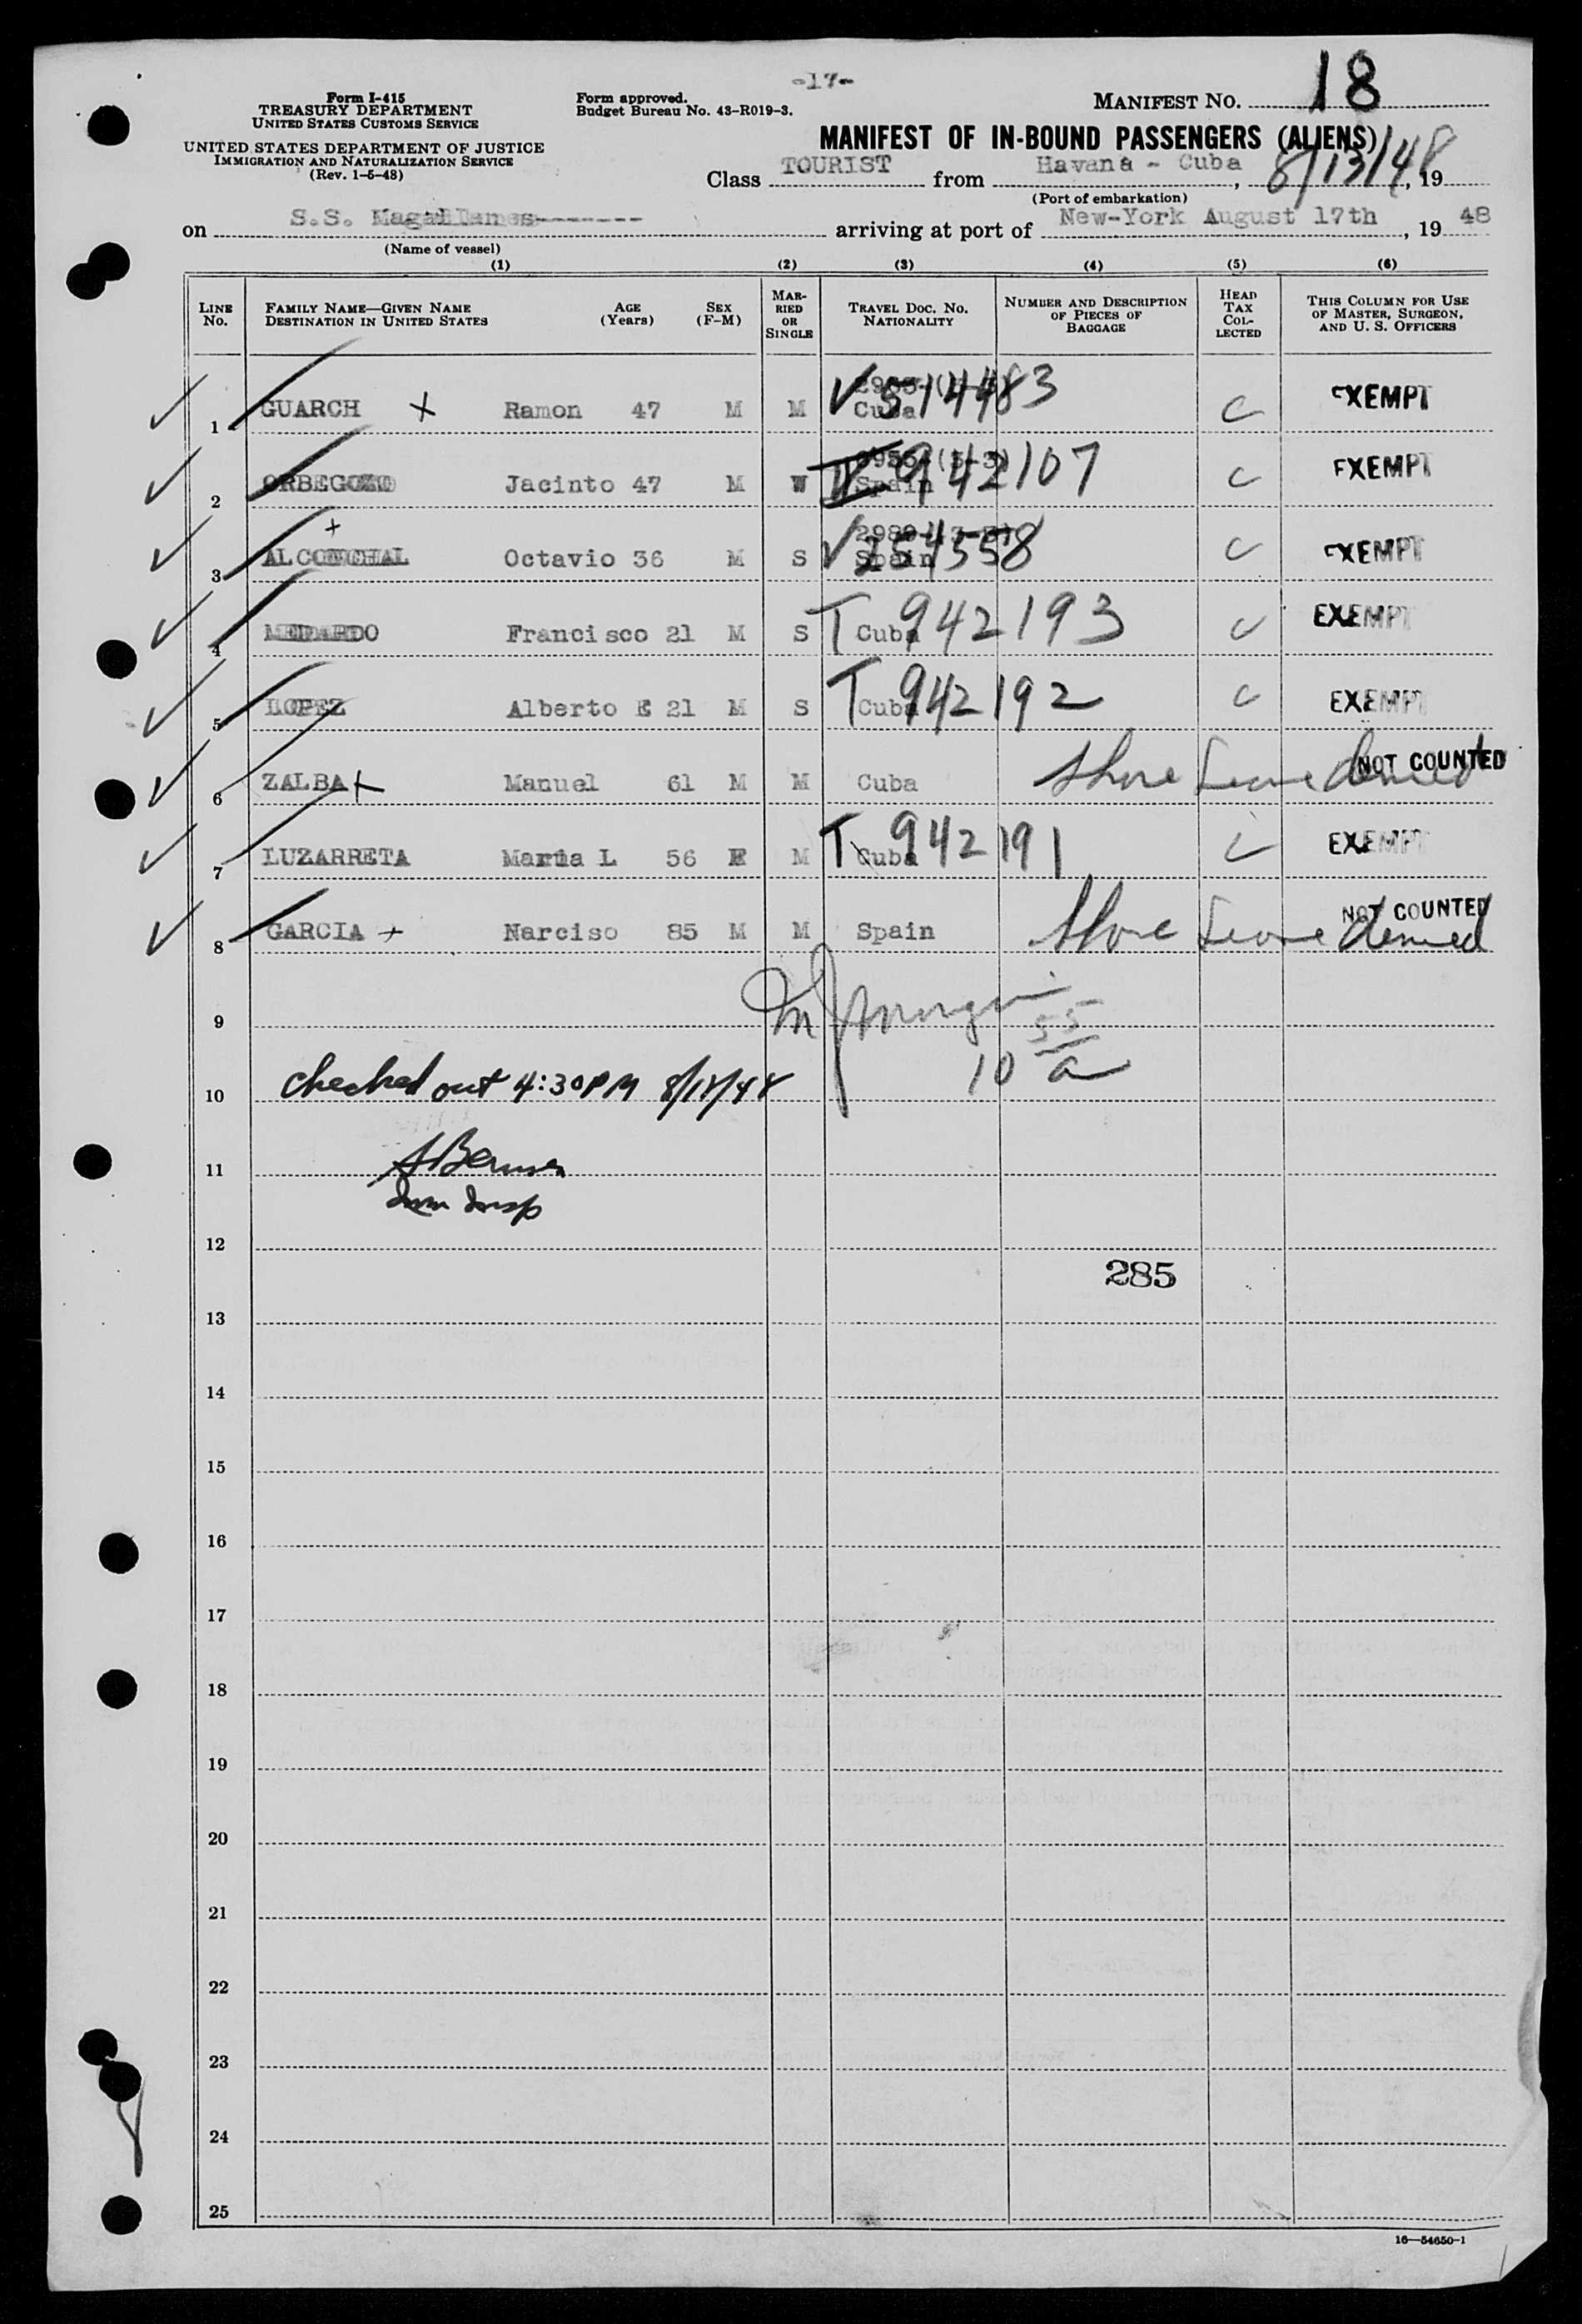 -17-
Form I-415
TREASURY DEPARTMENT
UNITED STATES CUSTOMS SERVICE
UNITED STATES DEPARTMENT OF JUSTICE
IMMIGRATION AND NATURALIZATION SERVICE
(Rev. 1-5-48)
Form approved.
Budget Bureau No. 43-R019-3.
MANIFEST NO. 18
MANIFEST OF IN-BOUND PASSENGERS (ALIENS)
Class TOURIST from Havana - Cuba, 8/13/48, 19
(Port of embarkation)
on S.S. Magallanes------- arriving at port of New-York August 17th, 19 48
(Name of vessel)
(1) (2) (3) (4) (5) (6)
LINE NO. FAMILY NAME—GIVEN NAME DESTINATION IN UNITED STATES AGE (Years) SEX (F-M) MARRIED OR SINGLE TRAVEL DOC. NO. NATIONALITY NUMBER AND DESCRIPTION OF PIECES OF BAGGAGE HEAD TAX COLLECTED THIS COLUMN FOR USE OF MASTER, SURGEON, AND U. S. OFFICERS
1 GUARCH Ramon 47 M M V 514483 Cuba EXEMPT
2 ORBEGOZO Jacinto 47 M W 942107 Spain EXEMPT
3 ALCONCHAL Octavio 36 M S Spain EXEMPT
4 MEDARDO Francisco 21 M S T 942193 Cuba EXEMPT
5 LOPEZ Alberto E 21 M S T 942192 Cuba EXEMPT
6 ZALBA Manuel 61 M M Cuba Shore Leave denied NOT COUNTED
7 LUZARRETA Maria L 56 F M T 942191 Cuba EXEMPT
8 GARCIA Narciso 85 M M Spain Shore Leave denied NOT COUNTED
9
10 55 a
10 checked out 4:30PM 8/18/48
11
Imm Insp
12
285
13
14
15
16
17
18
19
20
21
22
23
24
25
16—54650-1